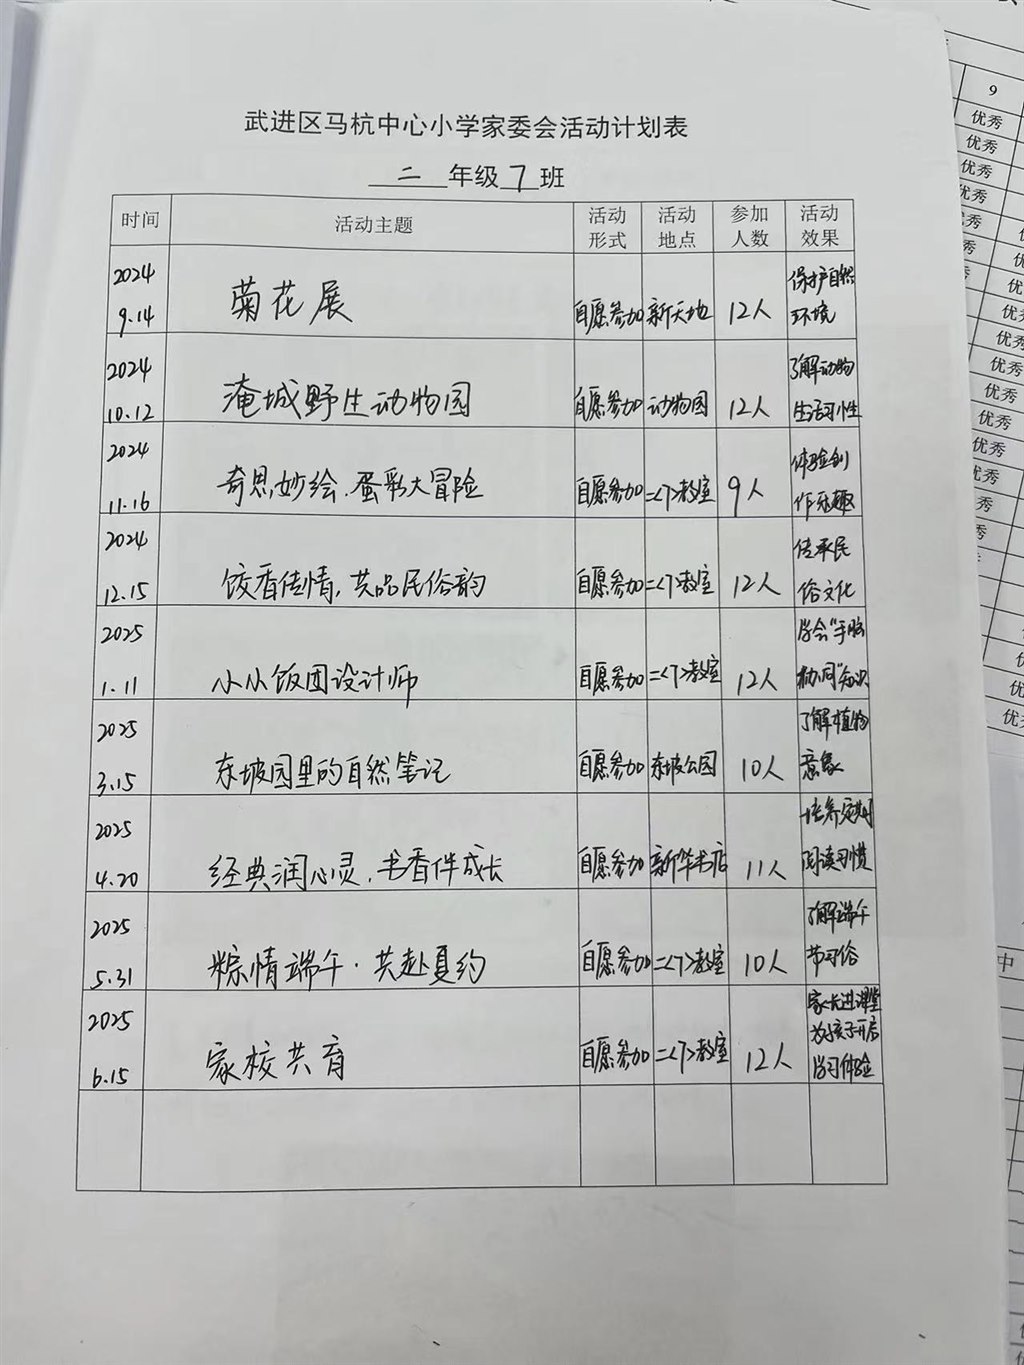 武进区马杭中心小学家委会活动计划表
二年级7班
时间 活动主题 活动形式 活动地点 参加人数 活动效果
2024 9.14 菊花展 自愿参加 新天地 12人 保护自然环境
2024 10.12 淹城野生动物园 自愿参加 动物园 12人 了解动物生活习性
2024 11.16 奇思妙绘.蛋彩大冒险 自愿参加 二<7>教室 9人 体验创作乐趣
2024 12.15 饺香传情,共品民俗韵 自愿参加 二<7>教室 12人 传承民俗文化
2025 1.11 小小饭团设计师 自愿参加 二<7>教室 12人 学会"手脑协同"知识
2025 3.15 东坡园里的自然笔记 自愿参加 东坡公园 10人 了解植物意象
2025 4.20 经典润心灵.书香伴成长 自愿参加 新华书店 11人 培养定期阅读习惯
2025 5.31 粽情端午·共赴夏约 自愿参加 二<7>教室 10人 了解端午节习俗
2025 6.15 家校共育 自愿参加 二<7>教室 12人 家长进课堂为孩子开启学习体验
9
优秀
优秀
优秀
优秀
优秀
优秀
优秀
优秀
优秀
优秀
中